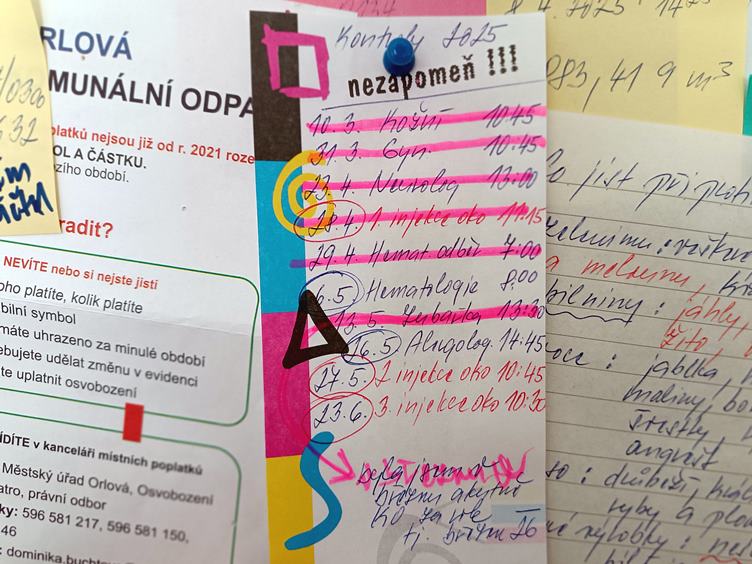 RLOVÁ
MUNÁLNÍ ODPA
platků nejsou již od r. 2021 roze
OL A ČÁSTKU.
zího období.
radit?
NEVÍTE nebo si nejste jistí
oho platíte, kolik platíte
bilní symbol
máte uhrazeno za minulé období
ebujete udělat změnu v evidenci
te uplatnit osvobození
DÍTE v kanceláři místních poplatků
Městský úřad Orlová, Osvobození
atro, právní odbor
ky: 596 581 217, 596 581 150,
46
: dominika.buchtov
Kontroly 2025
nezapomeň !!!
10. 3. Kožní 10:45
31. 3. Gyn. 10:45
23. 4. Neurolog 13:00
28.4. 1. injekce oko 11:15
29. 4. Hemat. odběr 7:00
6.5. Hematologie 8:00
13. 5. Zubařka 13:30
16.5. Algolog. 14:45
27.5. 2 injekce oko 10:45
23.6. 3. injekce oko 10:30
KO za rok
tj. březen 26
983,419 m³
Co jíst při
zeleninu:
a meloun,
bilniny: jáhly,
žito,
ovoce: jablka,
maliny, bo
švestky,
angrešt
drůbeží,
ryby a
výrobky: